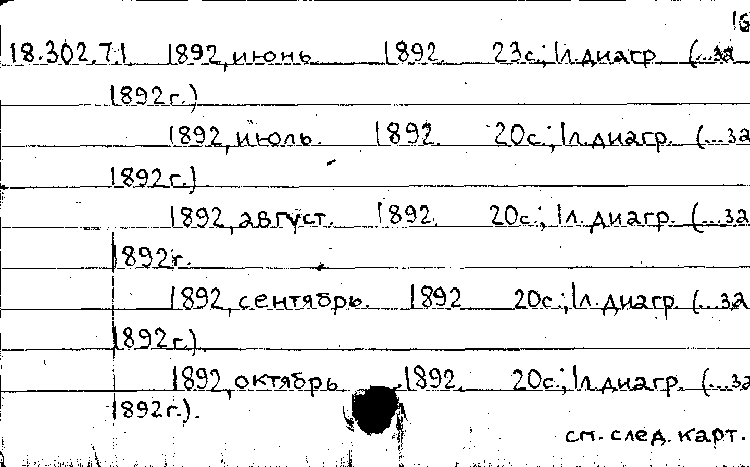 16
18.302.7.1 1892, июнь 1892. 23с.; 1л.диагр. (...за
1892г.)
1892, июль. 1892. 20с.; 1л.диагр. (...за
1892г.)
1892, август. 1892. 20с.; 1л.диагр. (...за
1892г.
1892, сентябрь. 1892 20с.; 1л.диагр. (...за
1892г.).
1892, октябрь. 1892. 20с.; 1л.диагр. (...за
1892г.).
см. след. карт.